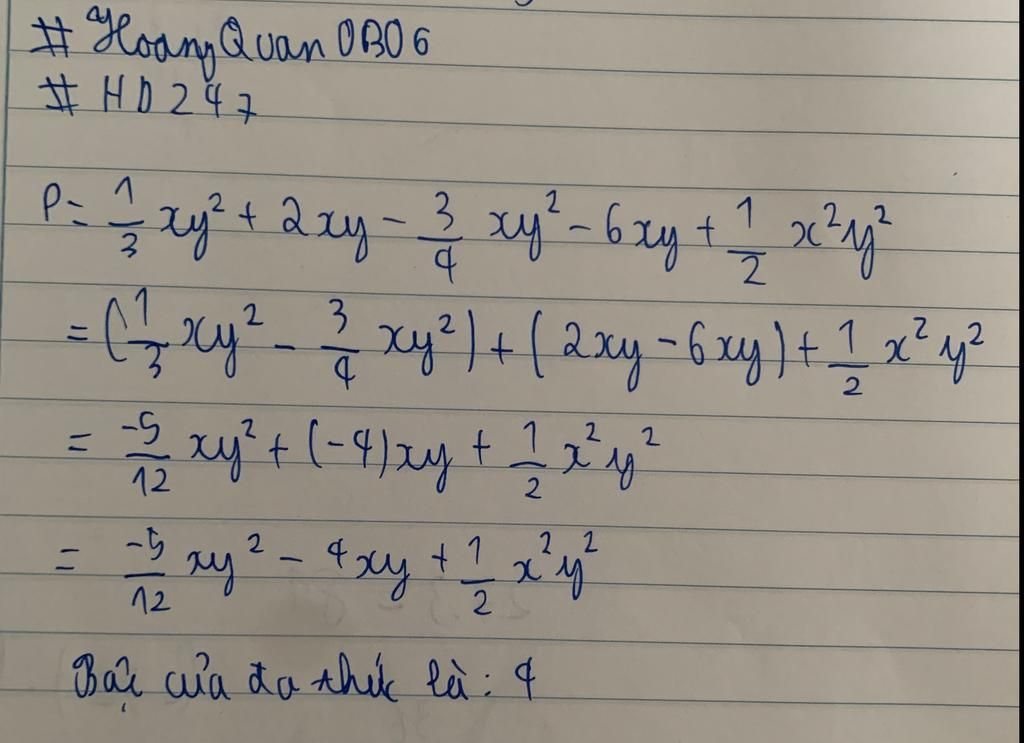 # HoangQuan0B06
# HD247
P = 1/3 xy² + 2xy - 3/4 xy² - 6xy + 1/2 x²y²
= (1/3 xy² - 3/4 xy²) + (2xy - 6xy) + 1/2 x²y²
= -5/12 xy² + (-4)xy + 1/2 x²y²
= -5/12 xy² - 4xy + 1/2 x²y²
Bậc của đa thức là: 4